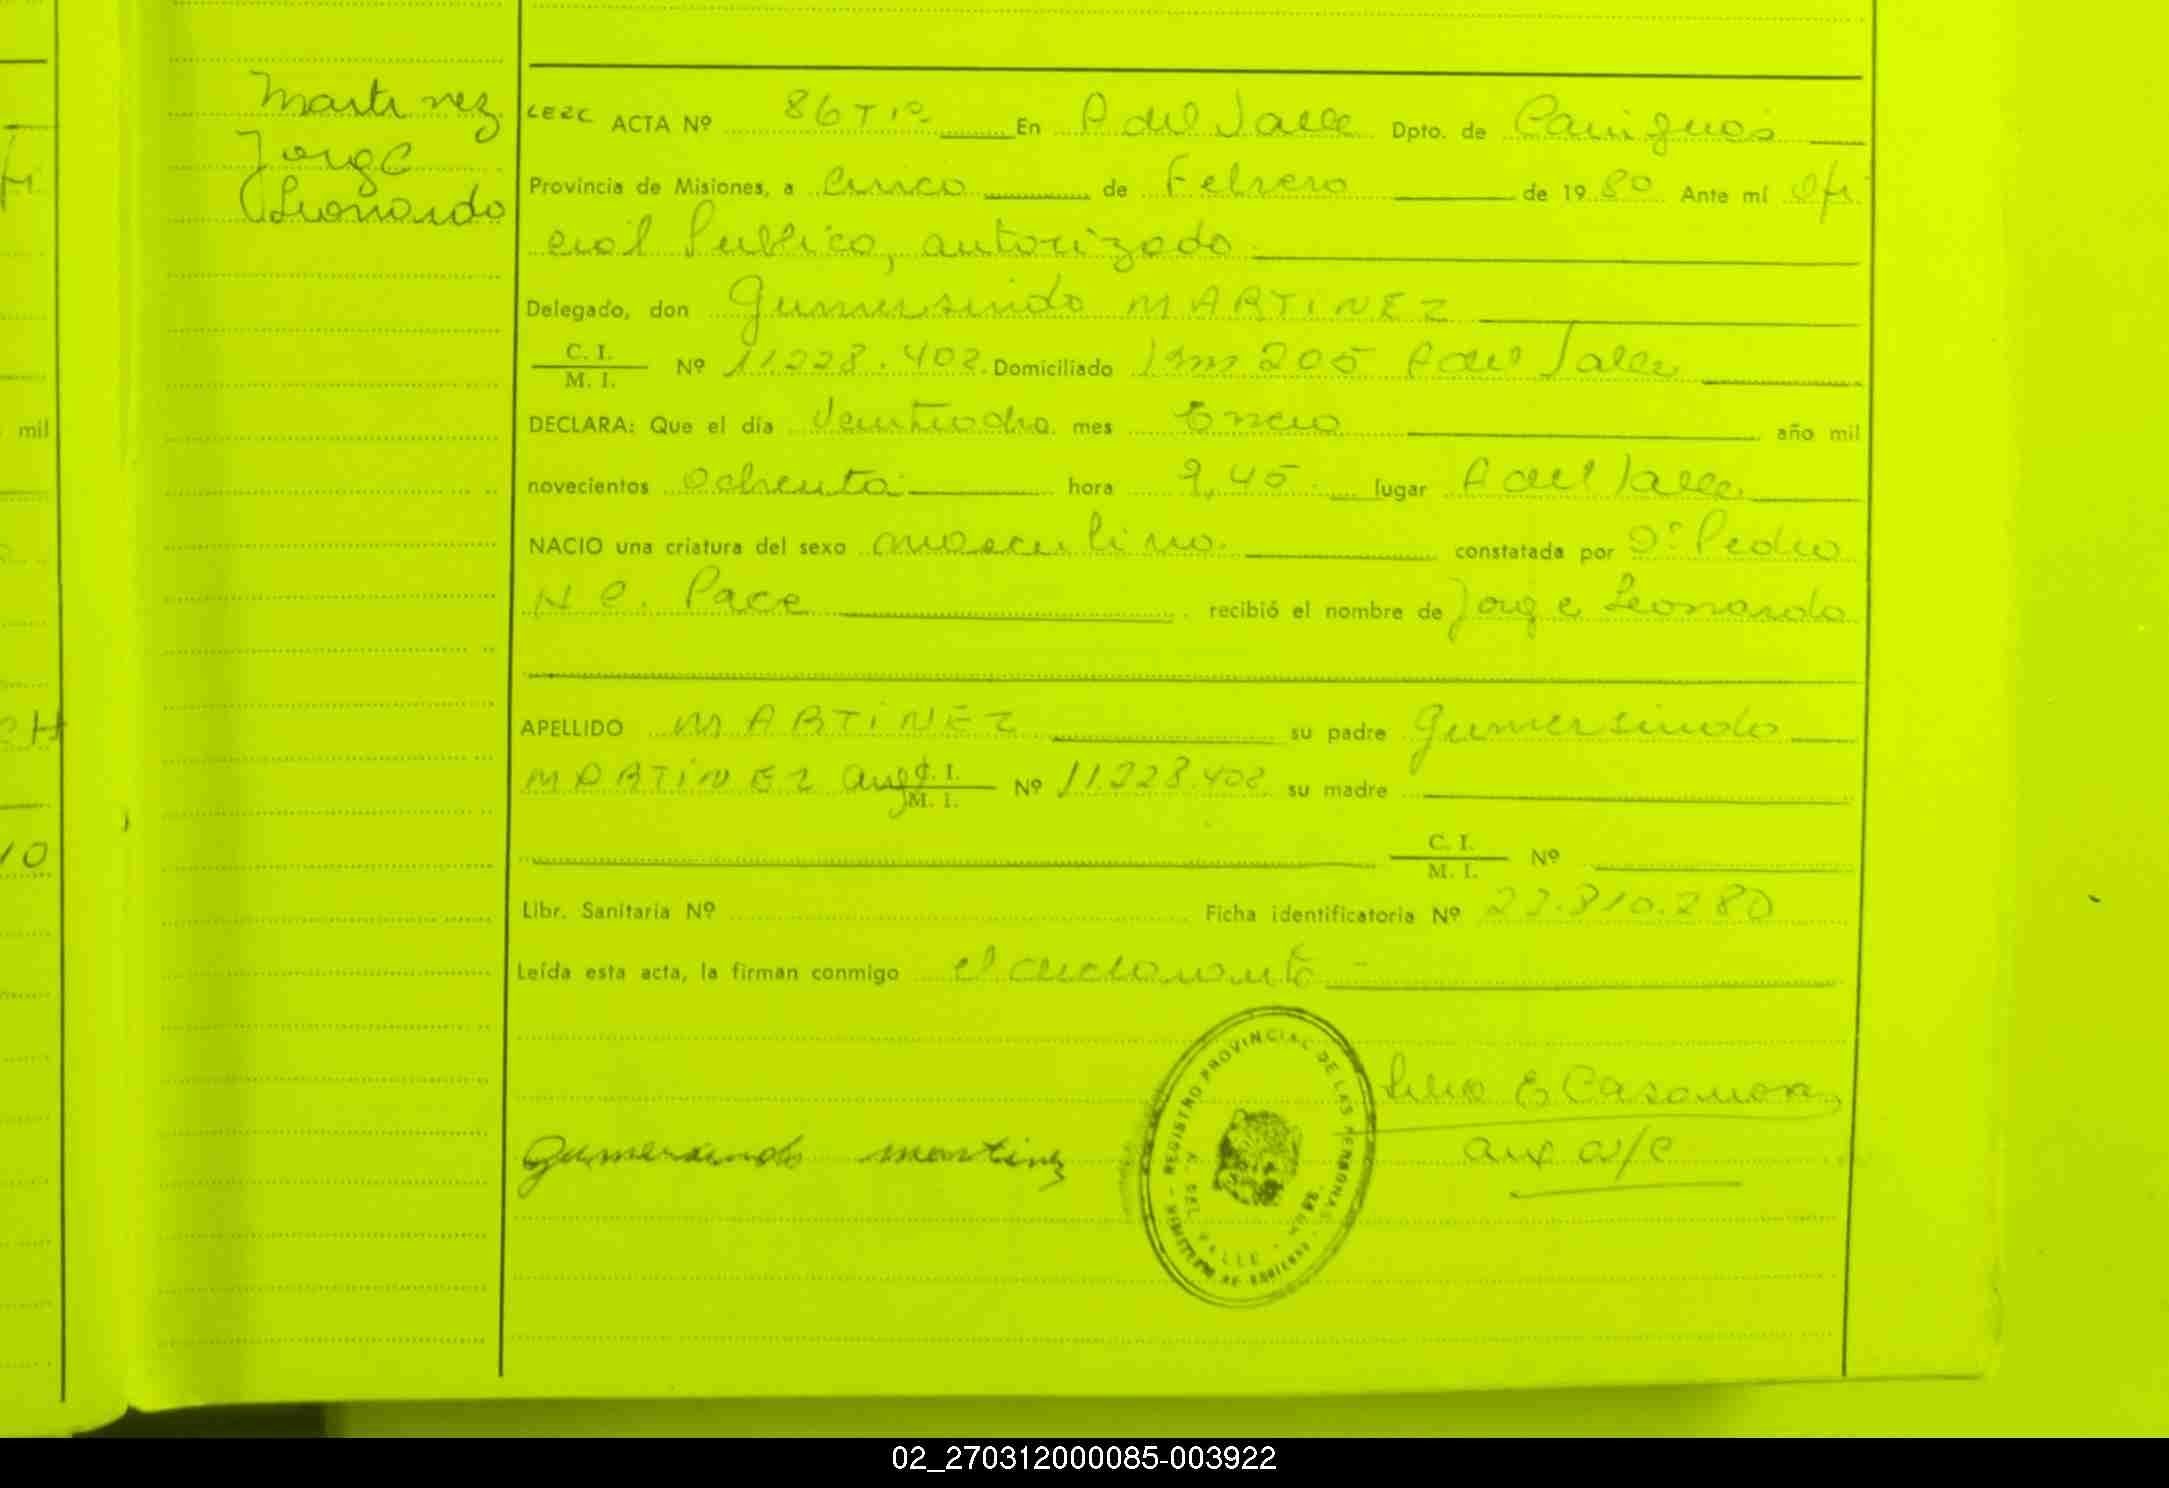 Martinez
Jorge
Leonardo
ACTA Nº 86 T 1º En A del Valle Dpto. de Cainguas
Provincia de Misiones, a Cinco de Febrero de 1980 Ante mí Ofi
cial Publico, autorizado
Delegado, don Gumersindo MARTINEZ
C. I.
M. I. Nº 11.228.402. Domiciliado Km 205 A del Valle
DECLARA: Que el día Veintiocho mes Enero año mil
novecientos Ochenta hora 9,45 lugar A del Valle
NACIO una criatura del sexo masculino. constatada por Dr Pedro
H C. Pace recibió el nombre de Jorge Leonardo
APELLIDO MARTINEZ su padre Gumersindo
MARTINEZ arg C. I.
M. I. Nº 11.228.402 su madre
C. I.
M. I. Nº
Libr. Sanitaria Nº Ficha identificatoria Nº 27.810.280
Leída esta acta, la firman conmigo el declarante
REGISTRO PROVINCIAL DE LAS PERSONAS
MINISTERIO DE GOBIERNO
A. DEL VALLE - MNES.
Gumersindo martinez
Lino E Casanova
aux a/c
mil
10
02_270312000085-003922